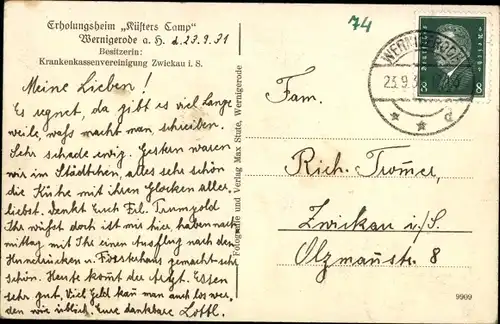 Erholungsheim „Küsters Camp"
Wernigerode a. H. d. 23.9.31
Besitzerin:
Krankenkassenvereinigung Zwickau i. S.
Meine Lieben!
Es regnet, da gibt es viel Lange
weile, waß macht man, schreiben.
Sehr schade ewig. Gestern waren
wir im Städtchen, alles sehr schön
die Kühe mit ihren Glocken aller
liebst. Denkt Euch Frl.
Ihr wüßt doch ist mir hier haben nach
mittag mit Ihr einen Ausflug nach den
u. Försterhaus gemacht sehr
schön. Heute komt der Arzt. Essen
sehr gut. Viel Geld kan man auch los wer,
den wie üblich. Eure dankbare Lottl.
Fotografie und Verlag Max Stute, Wernigerode
74
WERNIGERODE
23.9.3
* * d
DEUTSCHES REICH
8 8
Fam.
Rich. Tromer,
Zwickau i/S.
Olzmanstr. 8
9909